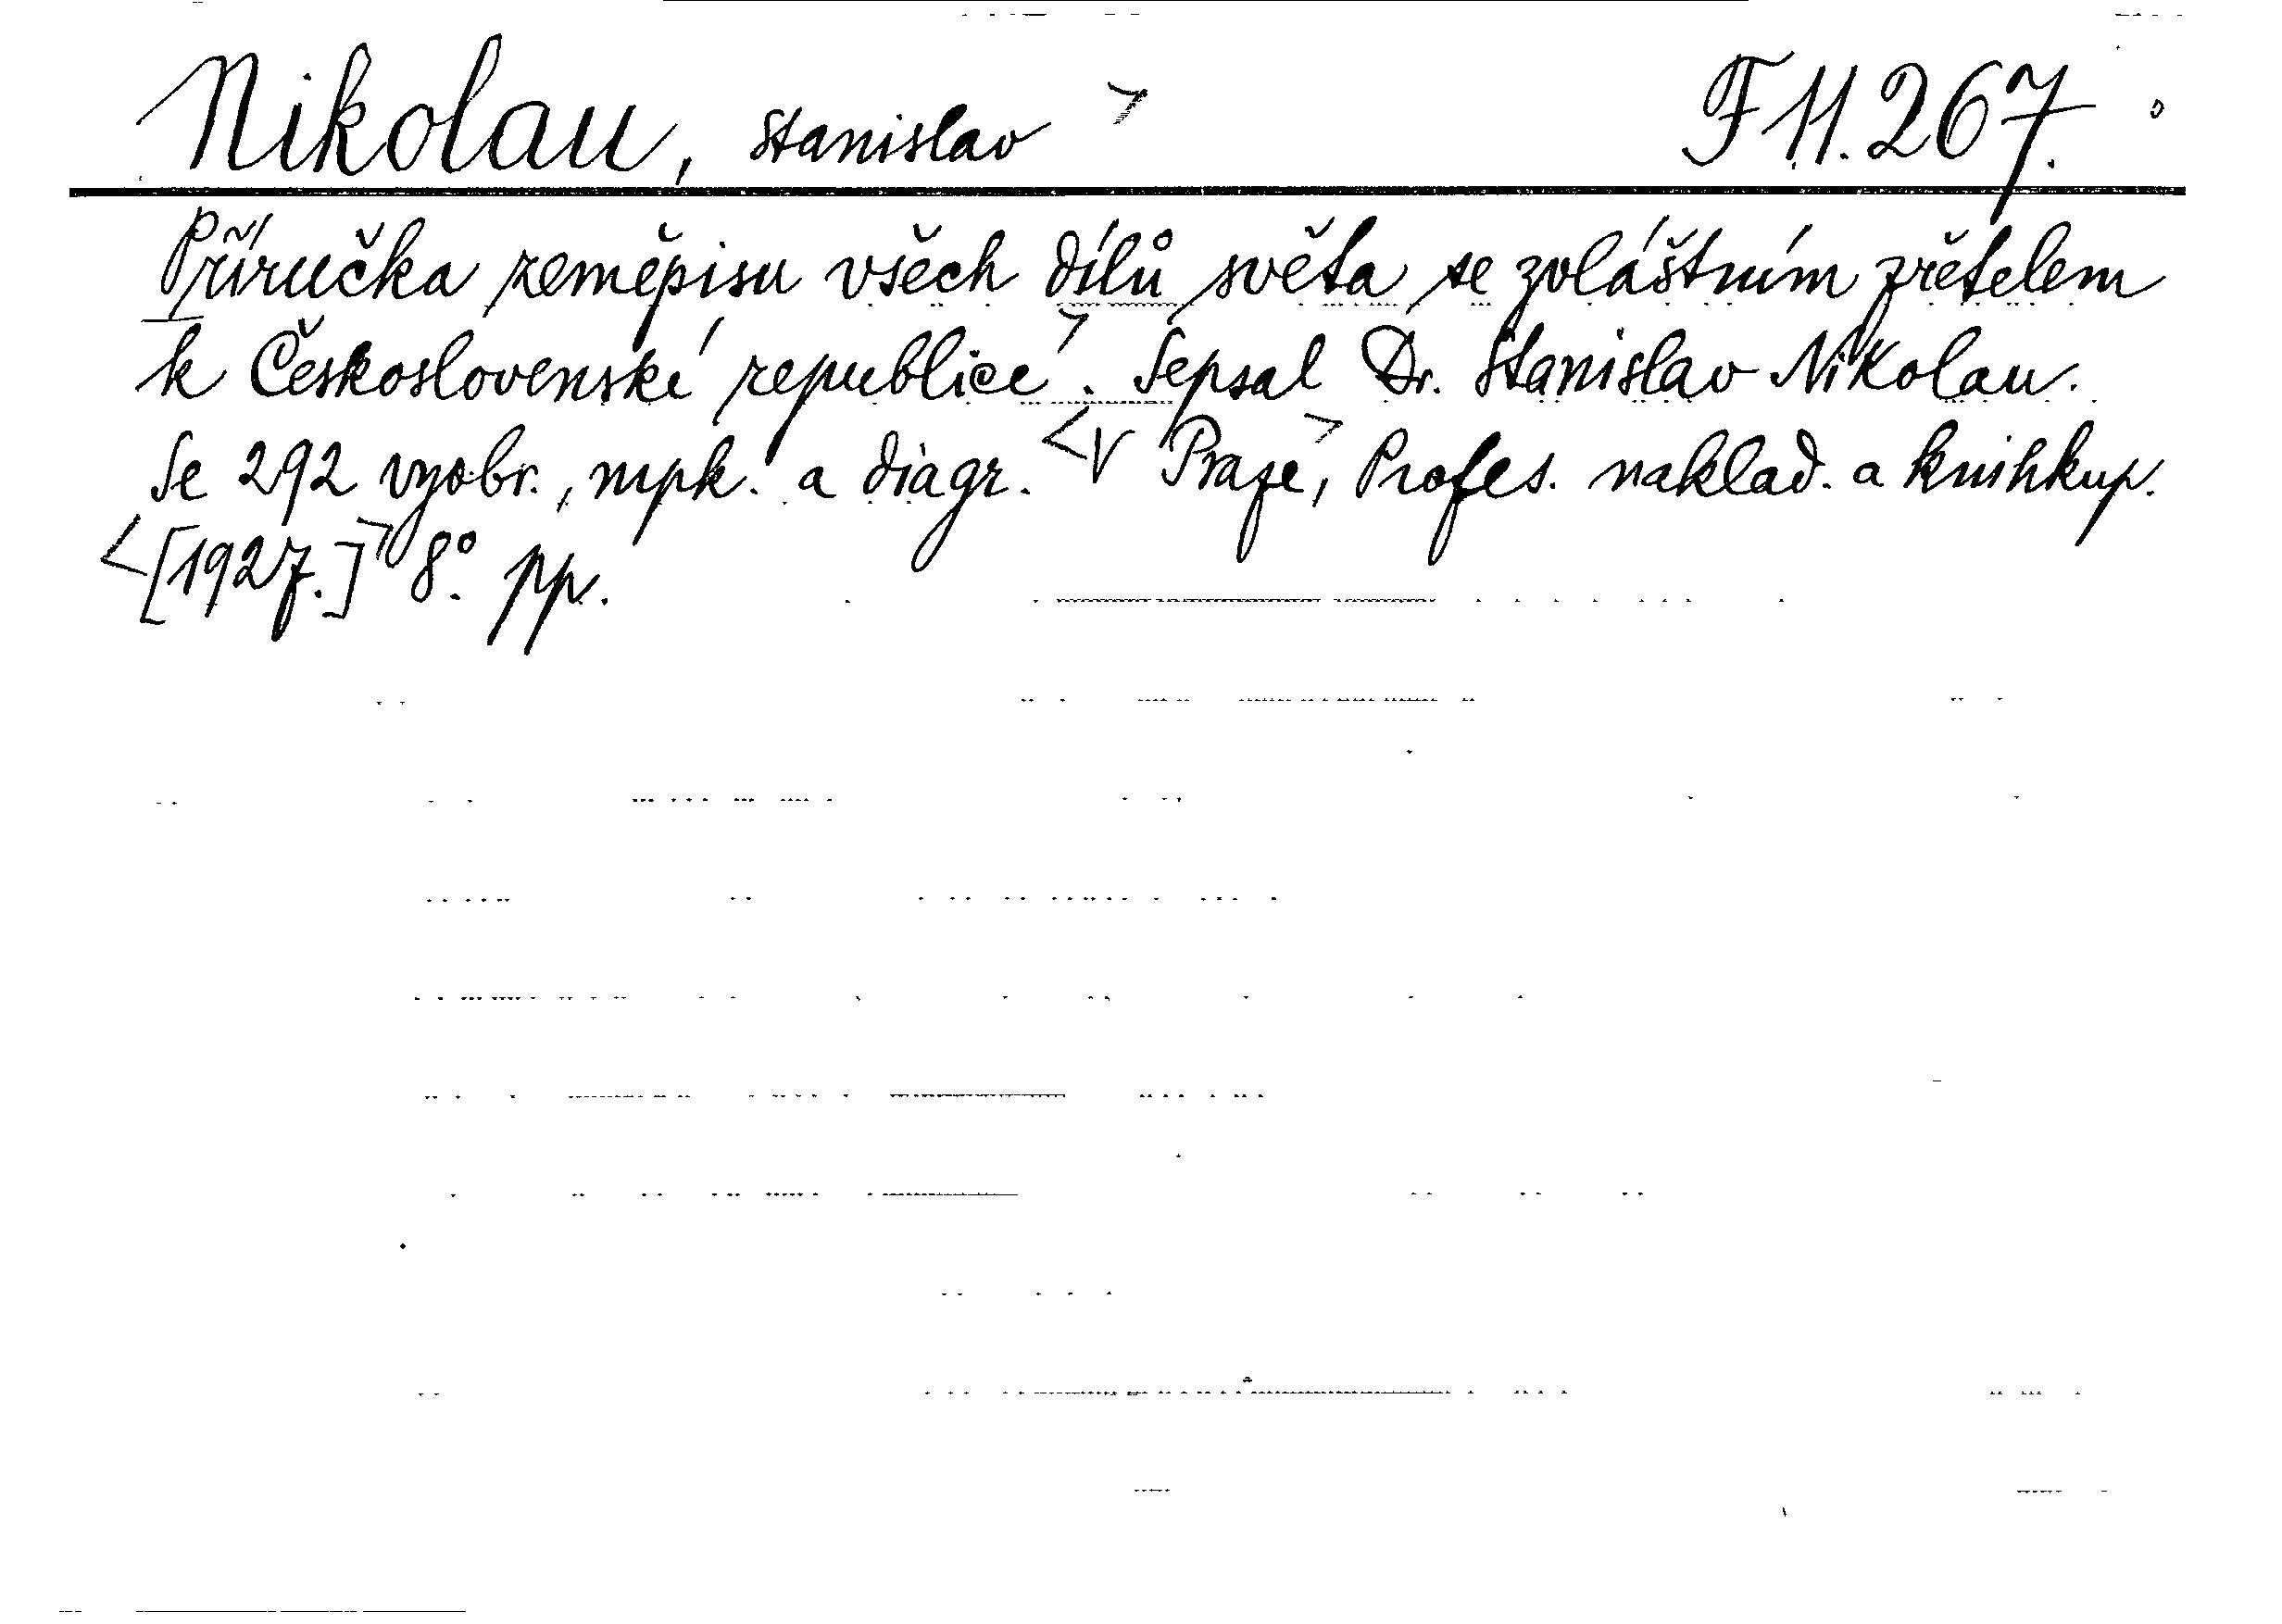 Nikolau, Stanislav > F 11.267.
Příručka zeměpisu všech dílů světa se zvláštním zřetelem
k Československé republice >. Sepsal Dr. Stanislav Nikolau.
Se 292 vyobr., mpk. a diagr. < V Praze >, Profes. naklad. a knihkup.
< [1927.] > 8°. pp.